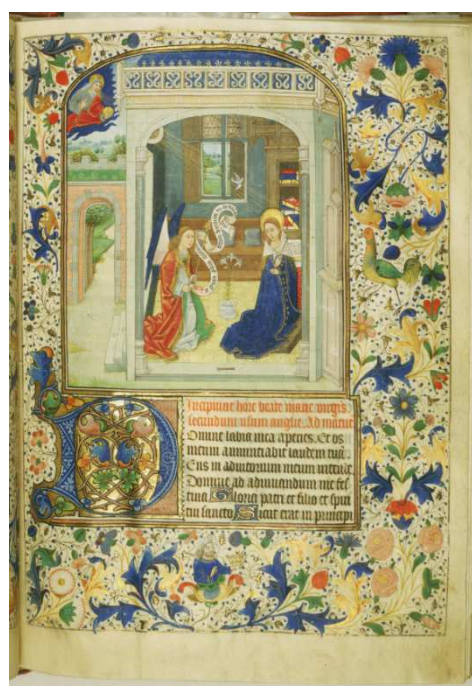 Incipiunt hore beate marie virgis
secundum usum anglie. Ad matut
DOmine labia mea aperies. Et os
meum annuntiabit laudem tuā.
Eus in adiutorium meum intende.
Domine ad adiuvandum me fes
tina. Gloria patri et filio et spiri
tui sancto. Sicut erat in principi